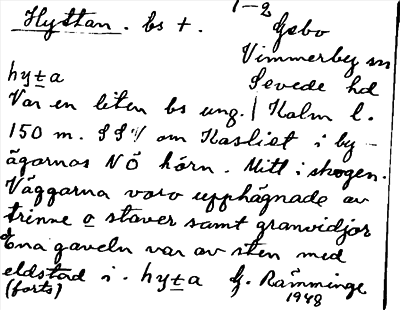 Hyttan. bs +. 1-2 Gebo
Vimmerby sn
hyṯa Sevede hd
Var en liten bs ung. 1 Kalm l.
150 m. SSV om Kasliet i by-
ägarnas NÖ hörn. Mitt i skogen.
Väggarna voro upphägnade av
trinne o staver samt granvidjor
Ena gaveln var av sten med
eldstad i. hyṯa G. Rämminge
(forts) 1948